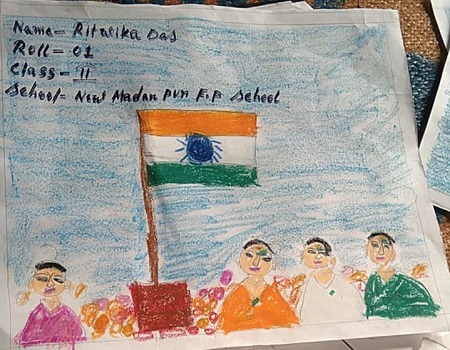 Name= Ritarika Das
Roll= 01
Class= II
School= New Madan pun F.p School